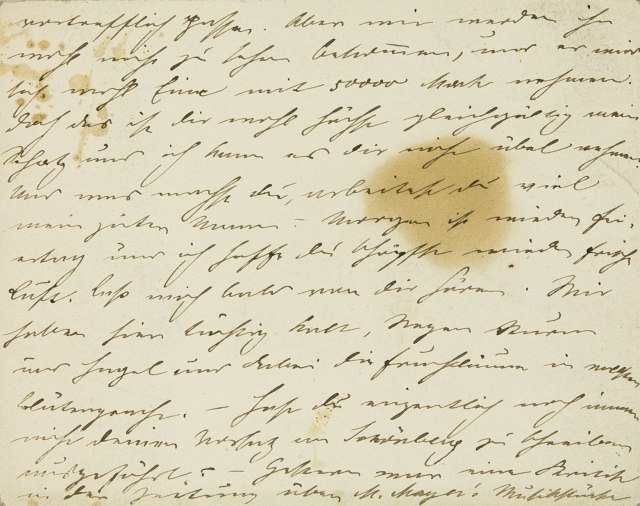 vortrefflich passen. Aber wir werden ihn
wohl nicht zu sehen bekommen, und er wird
sich wohl Eine mit 50000 Mark nehmen.
Doch das ist dir wohl höchst gleichgültig mein
Schatz und ich kann es dir nicht übel nehmen.
Und was machst du, arbeitest du viel
mein guter Mann? Morgen ist wieder Fei-
ertag und ich hoffe du schöpfst wieder frische
Luft. Laß mich bald von dir hören. Wir
haben hier tüchtig kalt, Regen Sturm
und Hagel und dabei die Fruchtbäume in vollster
Blütenpracht. – Hast du eigentlich noch immer
nicht deinen Vorsatz an Schönberg zu schreiben
ausgeführt? – Gestern war eine Kritik
in der Zeitung über M. Mayer's Musikstücke